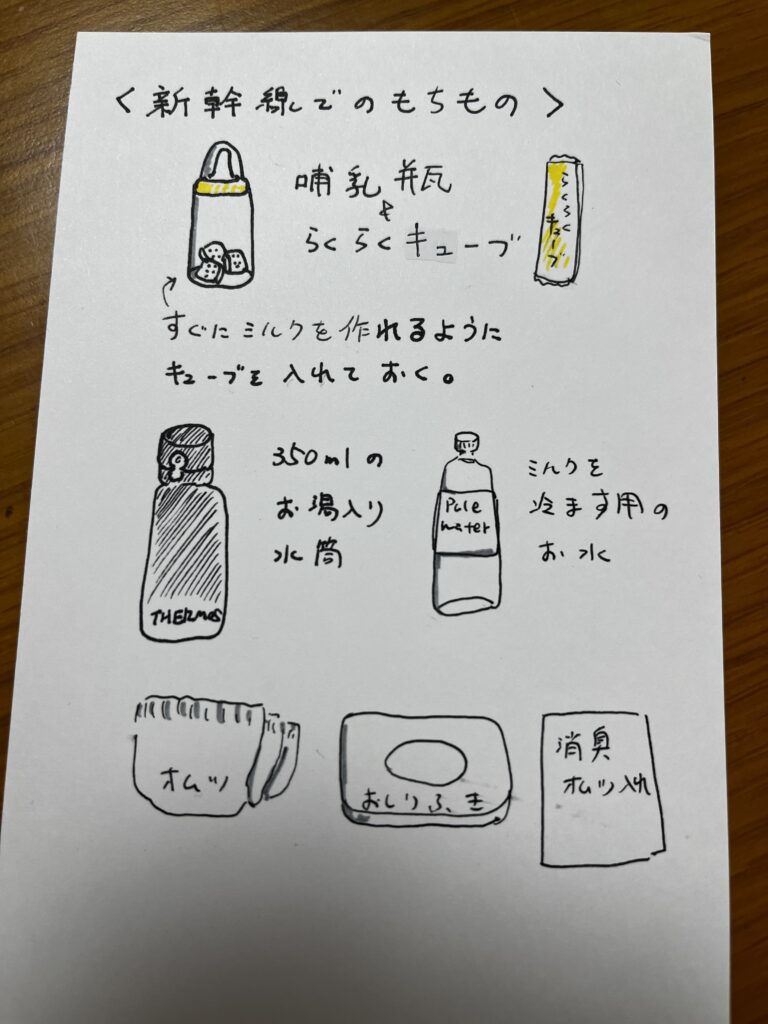 <新幹線でのもちもの>
哺乳瓶
&
らくらくキューブ
らくらく
キューブ
すぐにミルクを作れるように
キューブを入れておく。
350mlの
お湯入り
水筒
THERMOS
Pule
water
ミルクを
冷ます用の
お水
オムツ
おしりふき
消臭
オムツ入れ